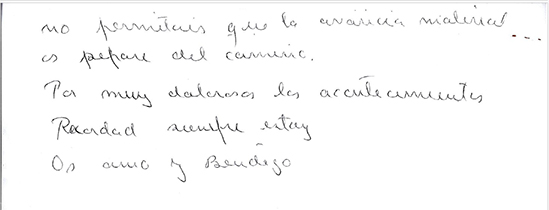 no permitais que la avaricia material...
os separe del camino.
Por muy dolorosos los acontecimientos
Recordad siempre estoy
Os amo y Bendigo